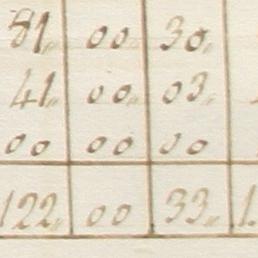 81,, 00,, 30,,
41,, 00,, 03,,
00 00 00
122,, 00 33,, 1